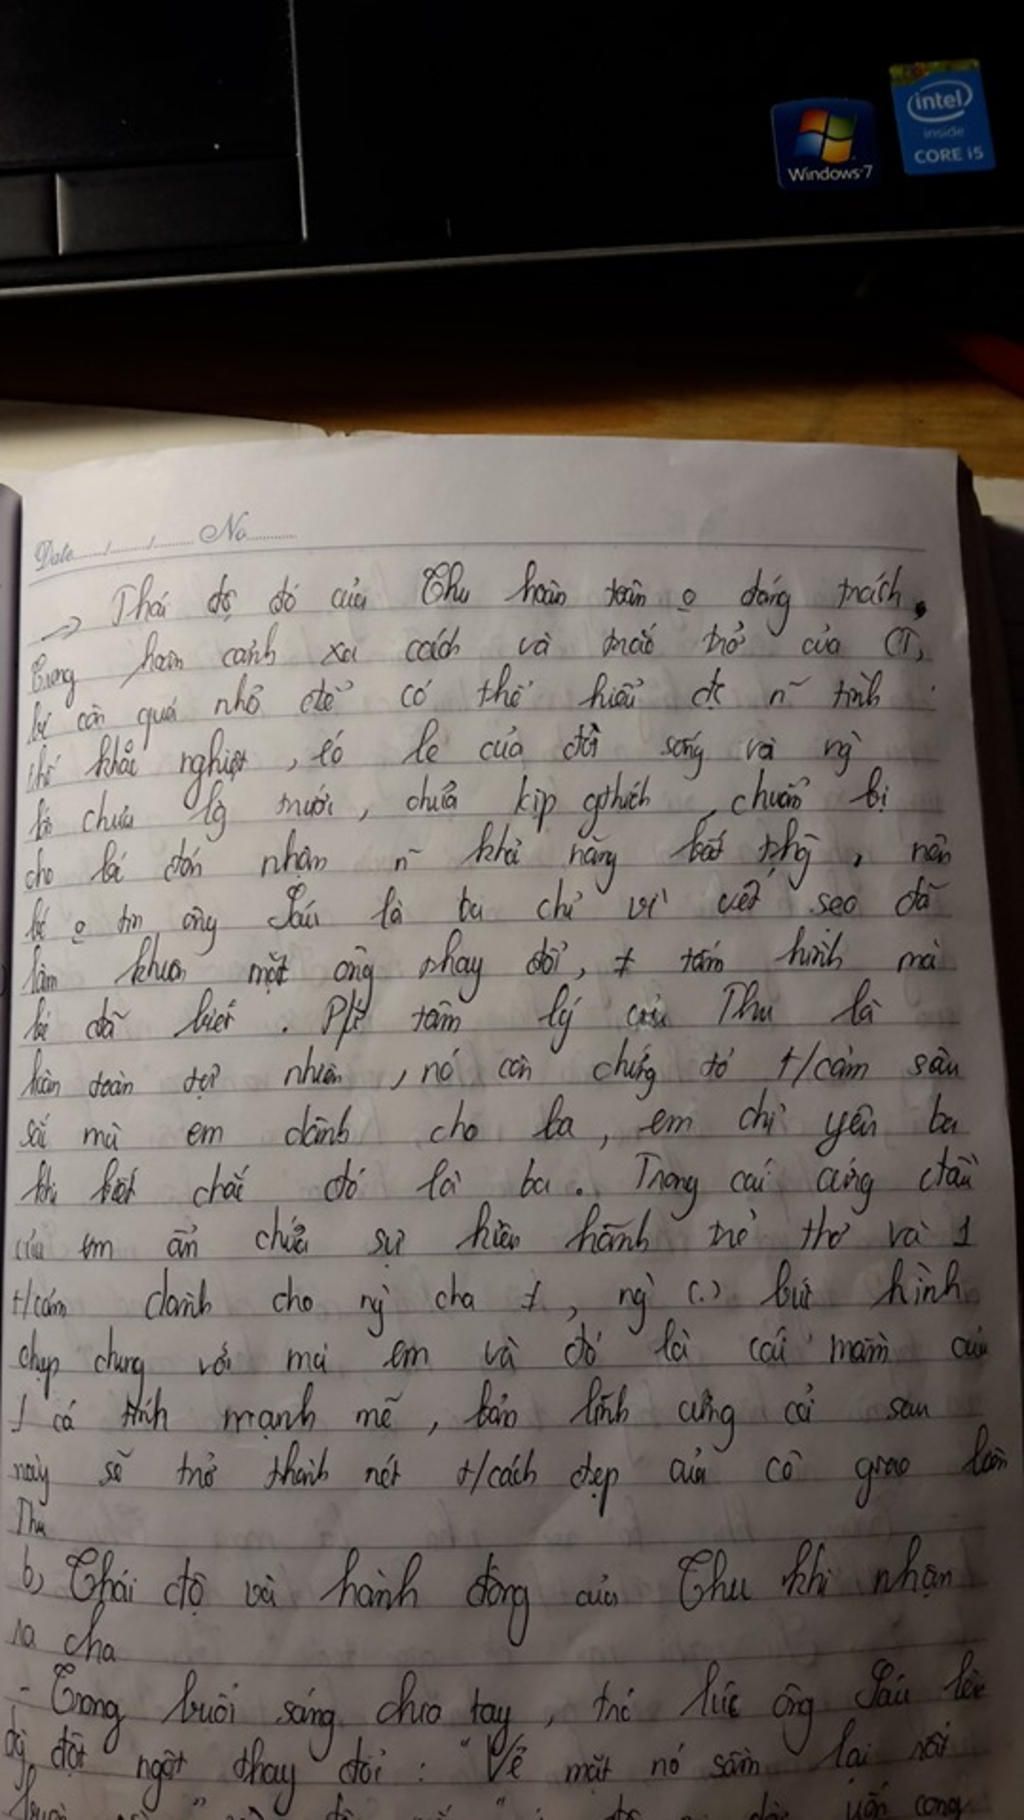 intel
inside
CORE i5
Windows 7
Date...../...../..... No.........
→ Thái độ đó của Thu hoàn toàn o đáng trách.
Trong hoàn cảnh xa cách và trắc trở của CT,
bé còn quá nhỏ để có thể hiểu đc n~ tình
thế khắc nghiệt, éo le của đời sống và ng`
lớn chưa trước, chưa kịp gthích, chuẩn bị
cho bé đón nhận n~ khả năng bất thg`, nên
bé o tin ông Sáu là ba chỉ vì vết sẹo đã
làm khuôn mặt ông thay đổi, ≠ tấm hình mà
bé đã biết. Pứ tâm lý của Thu là
hoàn toàn tự nhiên, nó còn chứng tỏ t/cảm sâu
sắc mà em dành cho ba, em chỉ yêu ba
khi biết chắc đó là ba. Trong cái cứng đầu
của em ẩn chứa sự kiêu hãnh trẻ thơ và 1
t/cảm dành cho ng` cha ≠, ng` (.) bức hình
chụp chung với má em và đó là cái mầm của
1 cá tính mạnh mẽ, bản lĩnh cứng cỏi sau
này sẽ trở thành nét t/cách đẹp của cô giao liên
Thu
b, Thái độ và hành động của Thu khi nhận
ra cha
- Trong buổi sáng chia tay, trc lúc ông Sáu lên
đột ngột thay đổi: "Vẻ mặt nó sầm lại